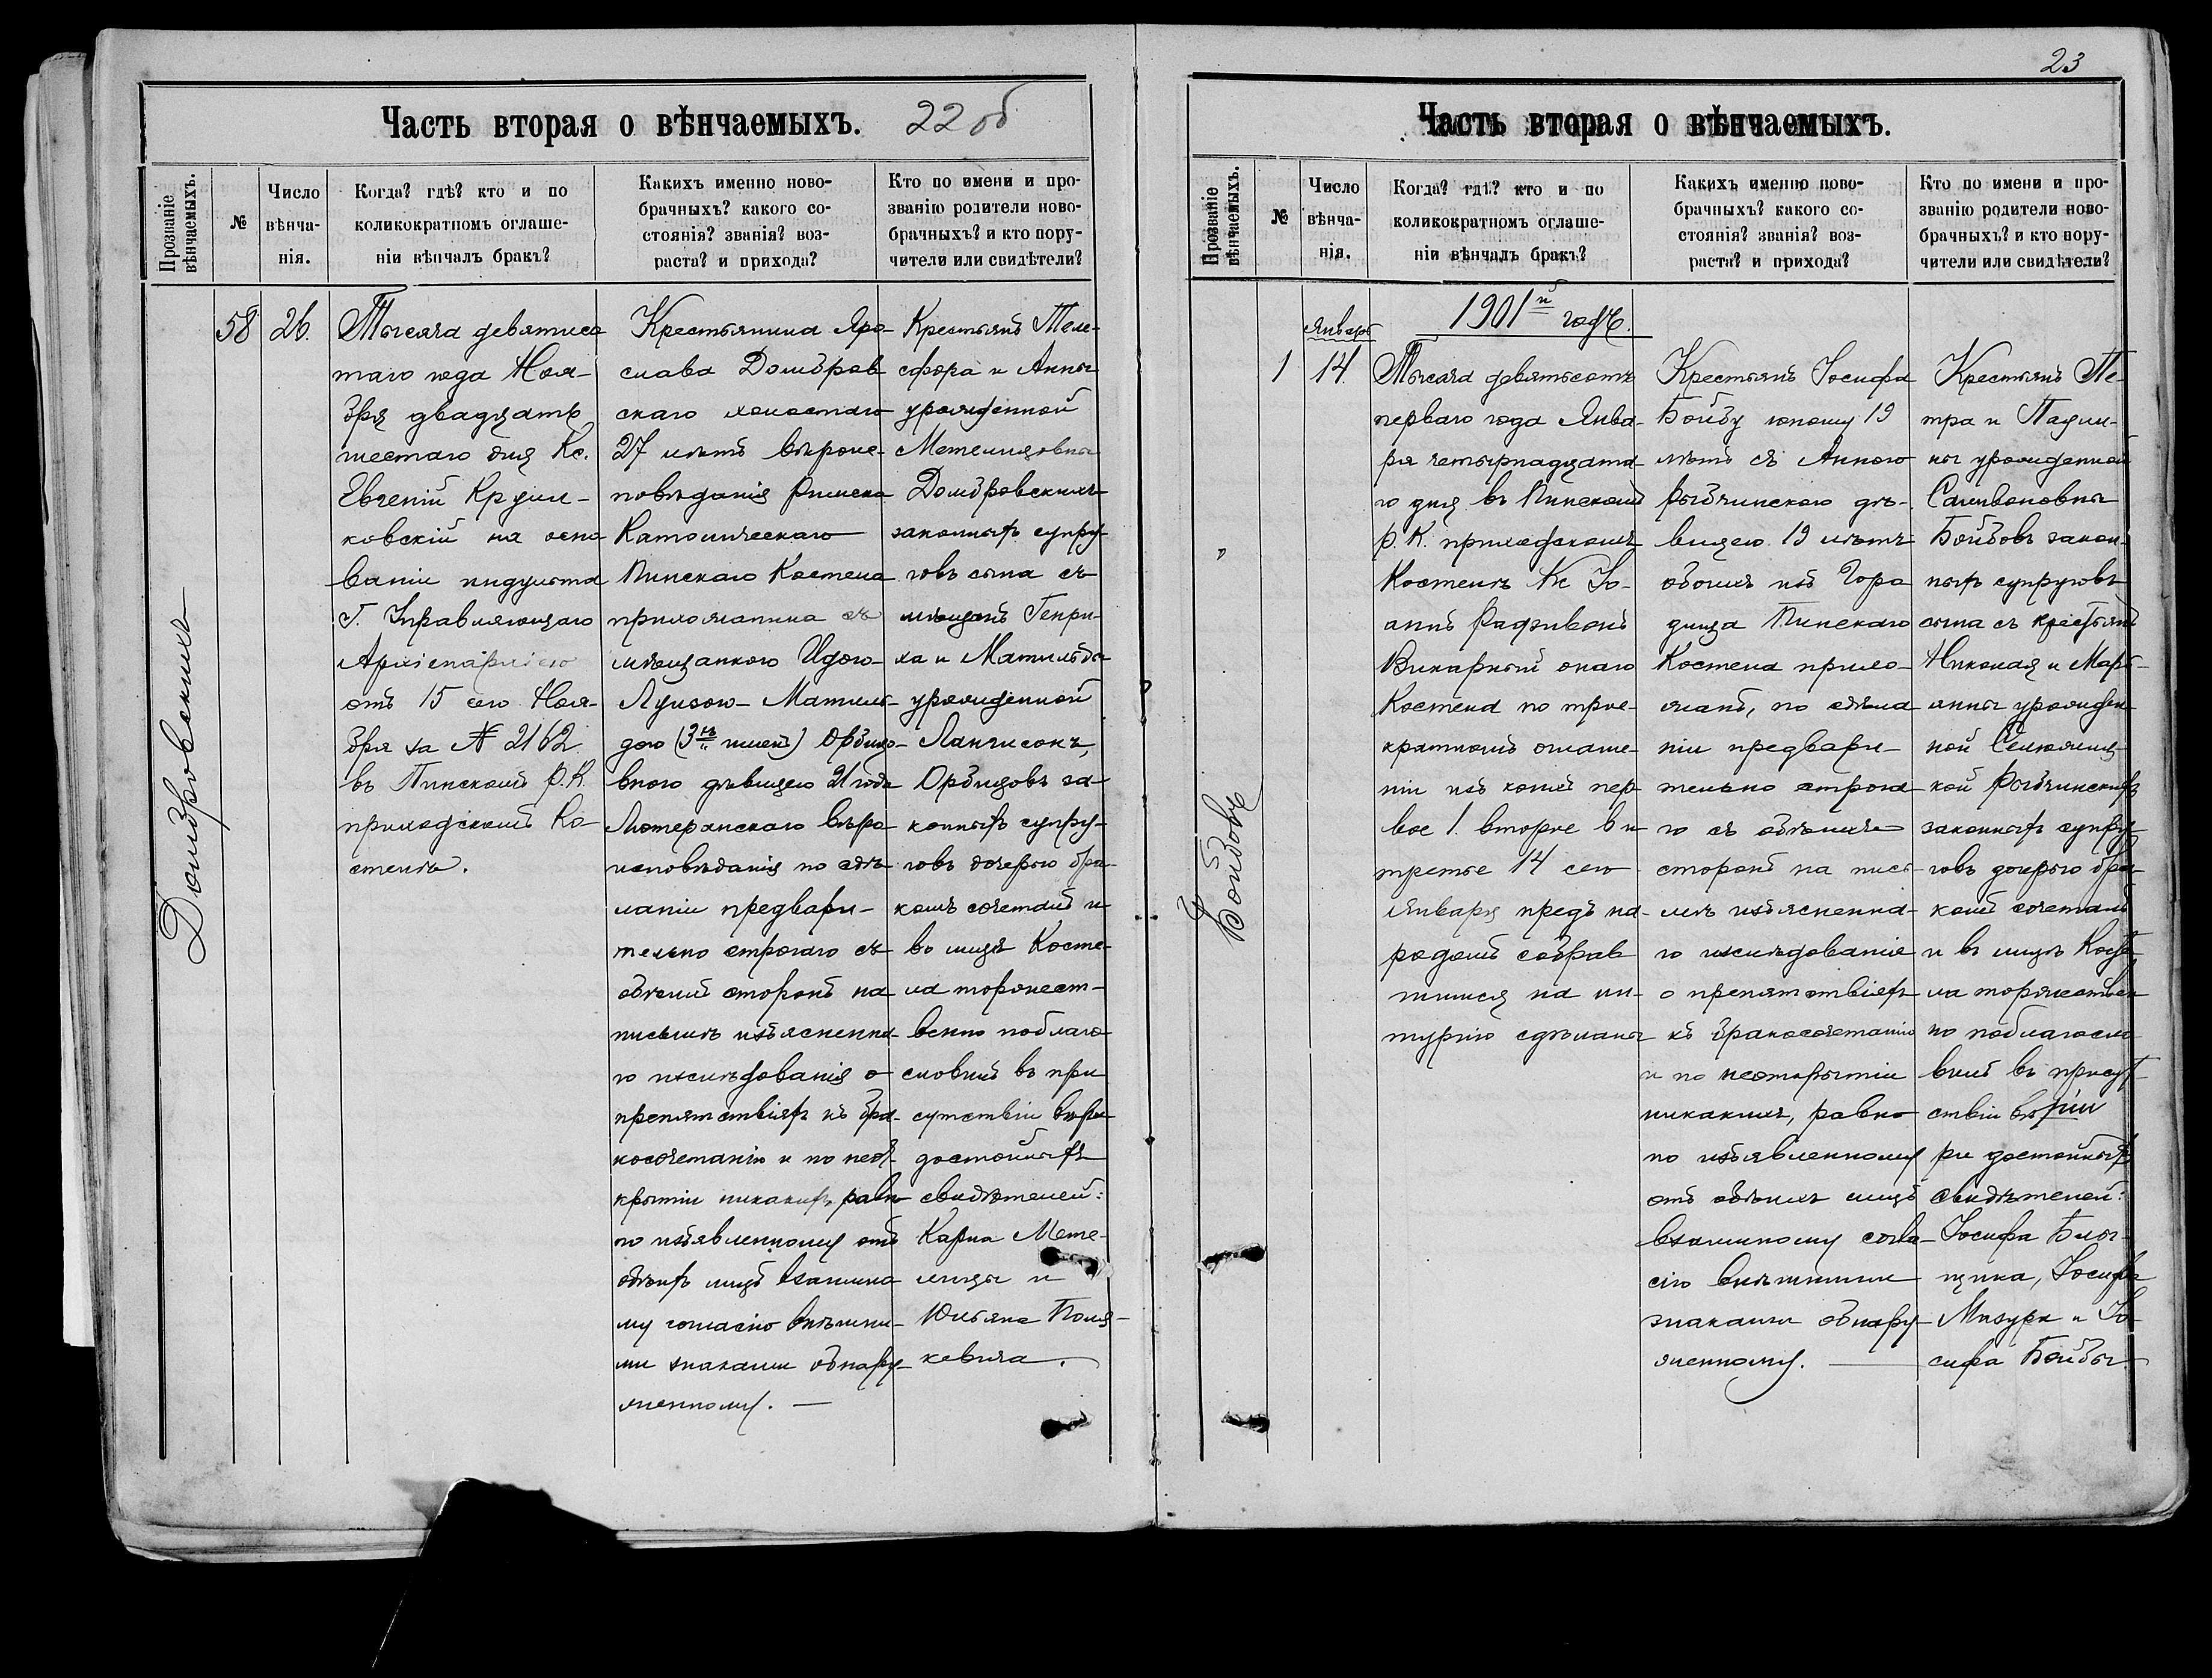 Часть вторая о вѣнчаемыхъ. 22 об
Прозваніе вѣнчаемыхъ.
№
Число вѣнча-
нія.
Когда? гдѣ? кто и по
коликократномъ оглаше-
ніи вѣнчалъ бракъ?
Какихъ именно ново-
брачныхъ? какого со-
стоянія? званія? воз-
раста? и прихода?
Кто по имени и про-
званію родители ново-
брачныхъ? и кто пору-
чители или свидѣтели?
Домбровскихъ
58
26.
Тысяча девятисо
таго года Ноя-
бря двадцать
шестаго дня Кс.
Евгеній Круш-
ковскій на осно
ваніи индульта
Г. Управляющаго
Архіепархіею
отъ 15 сего Ноя-
бря за № 2162
въ Пинскомъ Р. К.
приходскомъ Ко-
стелѣ.
Крестьянина Яро-
слава Домбров
скаго холостаго
27 лѣтъ вѣроис-
повѣданія Римско
Католическаго
Пинскаго Костела
прихожанина съ
мѣщанкою Идою-
Луизою-Матиль-
дою (3хъ именъ)
вною дѣвицею 21 года
Лютеранскаго вѣро
исповѣданія по сдѣ
ланіи предвари-
тельно строгаго съ
обѣихъ сторонъ на
письмѣ изъясненна-
го изслѣдованія о
препятствіяхъ къ бра-
косочетанію и по неот-
крытіи никакихъ, равн
по изъявленному отъ
обѣихъ лицъ взаимно
му согласію внѣшни-
ми знаками обнару-
женному. —
Крестьянъ Теле-
сфора и Анны
урожденной
Метелицовны
Домбровскихъ
законныхъ супру-
говъ сына съ
мѣщанъ Генри-
ха и Матильды
урожденной
за-
конныхъ супру-
говъ дочерью бра-
комъ сочеталъ и
въ лицѣ Косте-
ла торжест-
венно поблаго-
словилъ въ при
сутствіи вѣро
достойныхъ
свидѣтелей:
Карла Мете-
лицы и
Юльяна Поля-
кевича.
23
Часть вторая о вѣнчаемыхъ.
Прозваніе вѣнчаемыхъ.
№
Число вѣнча-
нія.
Когда? гдѣ? кто и по
коликократномъ оглаше-
ніи вѣнчалъ бракъ?
Какихъ именно ново-
брачныхъ? какого со-
стоянія? званія? воз-
раста? и прихода?
Кто по имени и про-
званію родители ново-
брачныхъ? и кто пору-
чители или свидѣтели?
Бойбовъ
1
Январь
14.
1901й годъ.
Тысяча девятьсотъ
перваго года Янва-
ря четырнадцата-
го дня въ Пинскомъ
Р. К. приходскомъ
Костелѣ Кс Іо-
аннъ
Викарный онаго
Костела по трое-
кратномъ оглаше-
ніи изъ коихъ пер-
вое 1. второе 6 и
третье 14 сего
Января предъ на-
родомъ собрав
шимся на ли-
тургію сдѣланы
Крестьянъ Іосифа
Бойбу юношу 19
лѣтъ съ Анною
Рыбчинскою дѣ-
вицею 19 лѣтъ
обоихъ изъ Горо
дища Пинскаго
Костела прихо-
жанъ, по сдѣла
ніи предвари-
тельно строга
го съ обѣихъ
сторонъ на пись-
мѣ изъясненна-
го изслѣдованія
о препятствіяхъ
къ бракосочетанію
и по неоткрытіи
никакихъ, равно
по изъявленному
отъ обѣихъ лицъ
взаимному согла-
сію внѣшними
знаками обнару-
женному. —
Крестьянъ Пе-
тра и Паули-
ны урожденной
Бойбовъ закон-
ныхъ супруговъ
сына съ крестьянъ
Николая и Марь-
янны урожден-
ной
Рыбчинскихъ
законныхъ супру-
говъ дочерью бра-
комъ сочеталъ
и въ лицѣ Косте
ла торжествен
но поблагосло
вилъ въ присут-
ствіи
достойныхъ
свидѣтелей:
Іосифа
Іосифа
Мазура и Іо-
сифа Бойбы